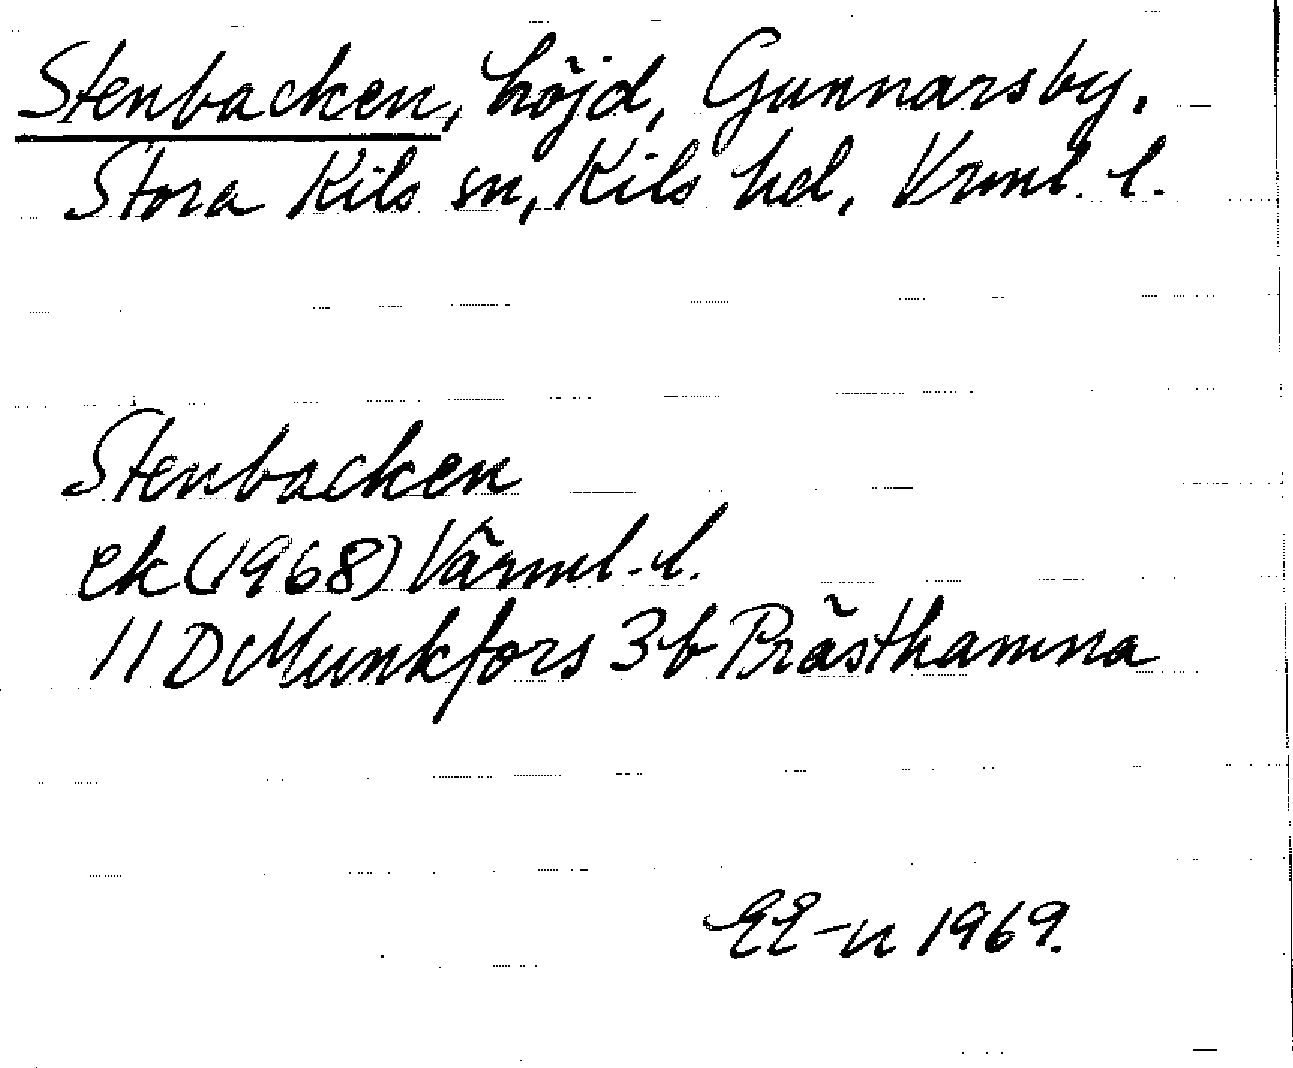 Stenbacken, höjd, Gunnarsby,
Stora Kils sn, Kils hd, Vrml. l.
Stenbacken
ek (1968) Värml. l.
11 D Munkfors 3b Prästhamna
EE-n 1969.